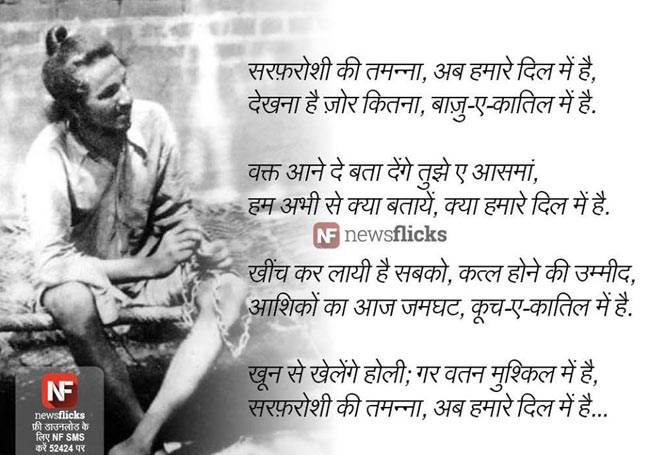 सरफ़रोशी की तमन्ना, अब हमारे दिल में है,
देखना है ज़ोर कितना, बाज़ु-ए-कातिल में है.
वक्त आने दे बता देंगे तुझे ए आसमां,
हम अभी से क्या बतायें, क्या हमारे दिल में है.
NF newsflicks
खींच कर लायी है सबको, कत्ल होने की उम्मीद,
आशिकों का आज जमघट, कूच-ए-कातिल में है.
खून से खेलेंगे होली; गर वतन मुश्किल में है,
सरफ़रोशी की तमन्ना, अब हमारे दिल में है...
NF
newsflicks
फ्री डाउनलोड के
लिए NF SMS
करें 52424 पर